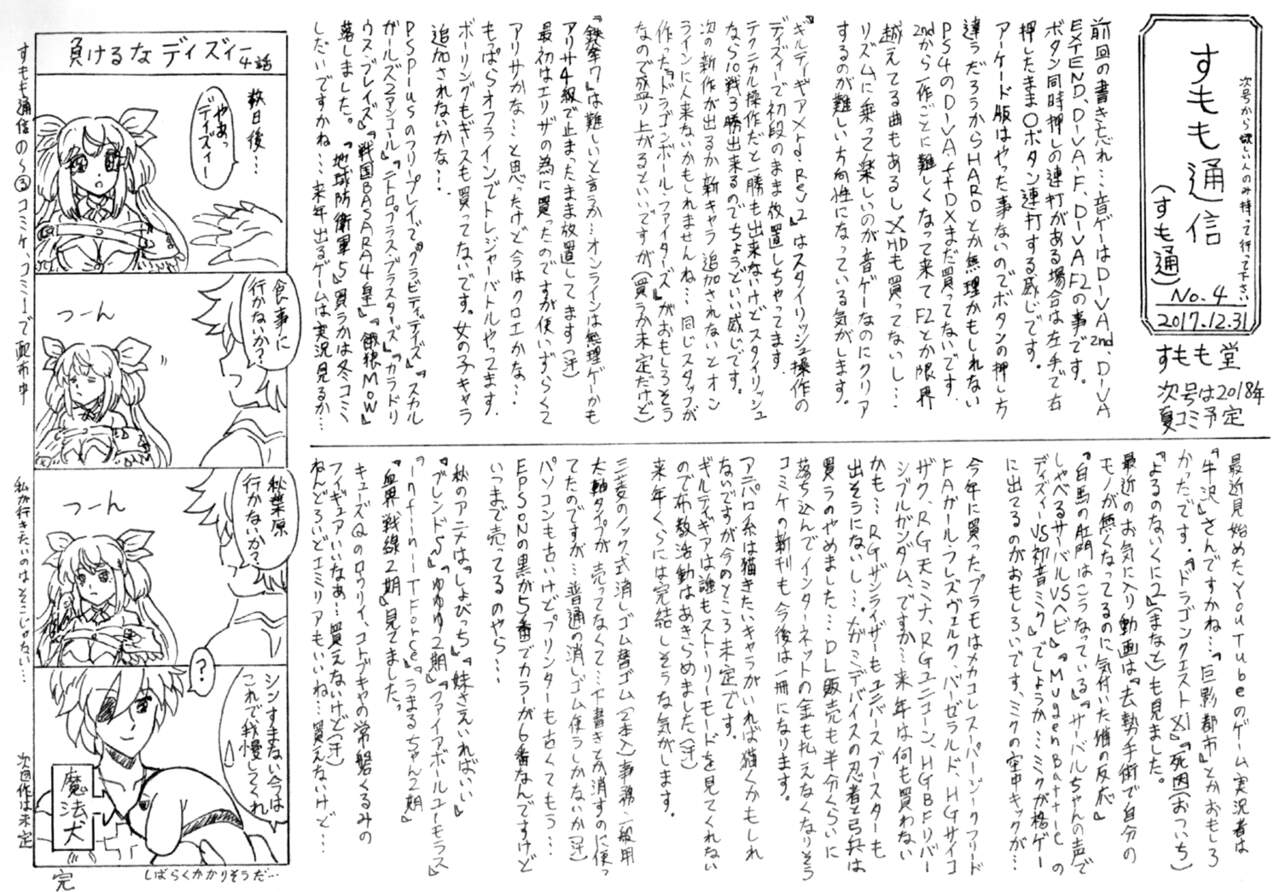 次号から欲しい人のみ持って行って下さい
すもも通信
(すも通)
No.4
2017.12.31
すもも堂
次号は2018年
夏コミ予定
前回の書き忘れ…音ゲーはDIVA2nd、DIVA
EXTEND、DIVA.F、DIVAF2の事です。
ボタン同時押しの連打がある場合は左手で右
押したまま〇ボタン連打する感じです。
アーケード版はやった事ないのでボタンの押し方
違うだろうからHARDとか無理かもしれない
PS4のDIVA.ftDXまだ買ってないです。
2ndから一作ごとに難しくなって来てF2とか限界
越えてる曲もあるしXHDも買ってないし…
リズムに乗って楽しいのが音ゲーなのにクリア
するのが難しい方向性になっている気がします。
『ギルティギアXrd Rev2』はスタイリッシュ操作の
ディズィーで初段のまま放置しちゃってます
テクニカル操作だと一勝も出来ないけどスタイリッシュ
なら10戦3勝出来るのでちょうどいい感じです。
次の新作が出るか新キャラ追加されないとオン
ラインに人来ないかもしれませんね…同じスタッフが
作った『ドラゴンボールファイターズ』がおもしろそう
なので盛り上がるといいですが(買うか未定だけど)
『鉄拳7』は難しいと言うか…オンラインは無理ゲーかも
アリサ4級で止まったまま放置してます(汗)
最初はエリザの為に買ったのですが使いずらくて
アリサかな…と思ったけど今はクロエかな…
もっぱらオフラインでトレジャーバトルやってます。
ボーリングもギースも買ってないです。女の子キャラ
追加されないかな…
PSPlusのフリープレイで『グラビティデイズ』『スカル
ガールズ2アンコール』『ニトロプラスブラスターズ』『カラドリ
ウスブレイズ』『戦国BASARA4皇』『餓狼MOW』
落しました。『地球防衛軍5』買うかは冬コミ
したいですかね…来年出るゲームは実況見るか…
最近見始めたYouTubeのゲーム実況者は
『牛沢』さんですかね…『巨影都市』とかおもしろ
かったです。『ドラゴンクエストXI』『死因(おついち)
『よるのないくに2(まなど)も見ました。
最近のお気に入り動画は『去勢手術で自分の
モノが無くなってるのに気付いた猫の反応』
『白馬の肛門はこうなっている』『サーバルちゃんの声で
しゃべるサーバルVSヘビ』『MugenBattleの
ディズィーVS初音ミク』でしょうか…ミクが格ゲー
に出てるのがおもしろいです、ミクの空中キックが…
今年に買ったプラモはメカコレスーパージークフリード
FAガールフレズヴェルク、バーゼラルド、HGサイコ
ザク、RG天ミナ、RGユニコーン、HGBFリバー
シブルガンダム、ですか…来年は何も買わない
かも…RGザンライザーもユニバースブースターも
出そうにないし…ガガミデバイスの忍者と弓兵は
買うのやめました…DL販売も半分くらいに
落ち込んでインターネットの金も払えなくなりそう
コミケの新刊も今後は一冊になります。
アニパロ系は描きたいキャラがいれば描くかもしれ
ないですが今のところ未定です。
ギルティギアは誰もストーリーモードを見てくれない
ので布教活動はあきらめました(汗)
来年くらいには完結しそうな気がします。
三菱のノック式消しゴム替ゴム(2本入)事務一般用
太軸タイプが売ってなくて…下書きとか消すのに使っ
てたのですが…普通の消しゴム使うしかないか(汗)
パソコンも古いけどプリンターも古くてもう…
EPSONの黒が5番でカラーが6番なんですけど
いつまで売ってるのやら…
秋のアニメは『しょびっち』『妹さえいればいい』
『ブレンド・S』『ゆゆゆ2期』『ファイブボールユーモラス』
『Infini-T Force』『うまるちゃん2期』
『血界戦線2期』見てました。
キューズQのロウリィ、コトブキヤの常磐くるみの
フィギュアいいなぁ…買えないけど(汗)
ねんどろいどエミリアもいいね…買えないけど…
負けるなディズィー4話
数日後…
やあっ
ディズィー
食事に
行かないか?
つーん
秋葉原
行かないか?
つーん
?
シンすまない今は
これで我慢してくれ
魔法犬
完
しばらくかかりそうだ…
すもも通信の1~3コミケ、コミ1で配布中
私が行きたいのはそこじゃない…
次回作は未定